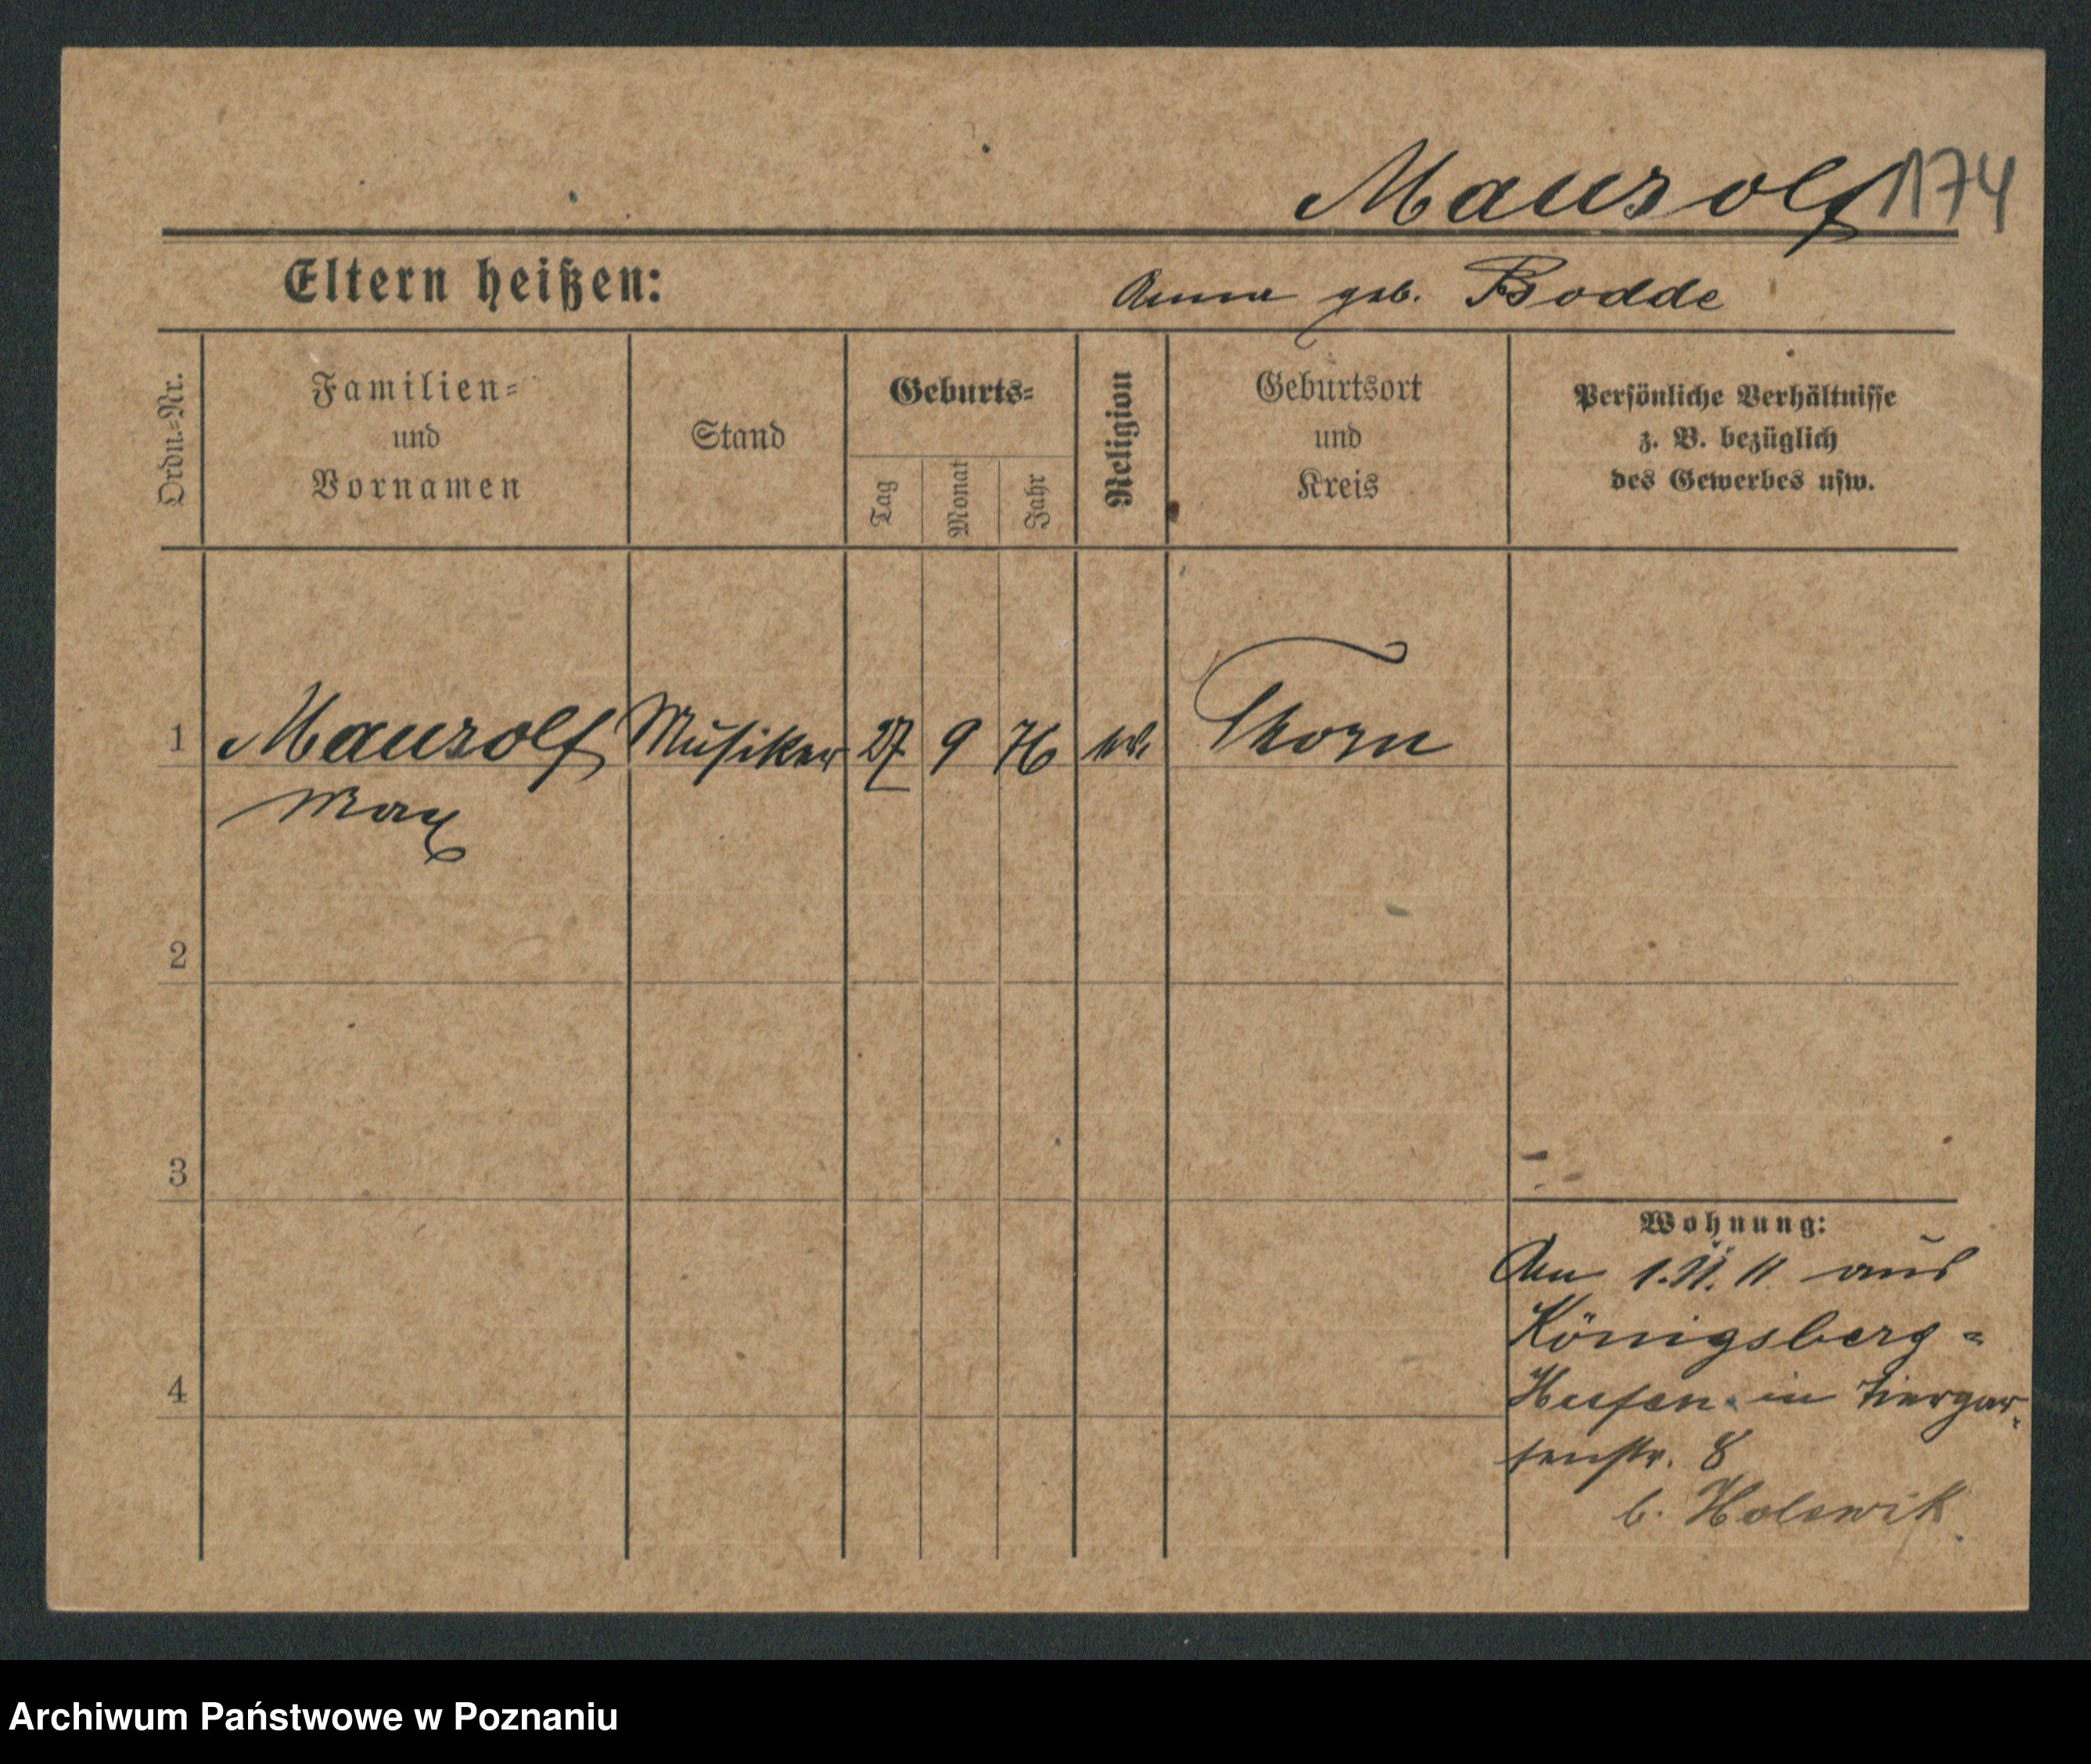 Mausolf 174
Eltern heißen: Anna geb. Bodde
Ordn.-Nr.
Familien-
und
Vornamen
Stand
Geburts-
Tag
Monat
Jahr
Religion
Geburtsort
und
Kreis
Persönliche Verhältnisse
z. B. bezüglich
des Gewerbes usw.
1 Mausolf Musiker 27 9 76 Thorn
Max
2
3
4
Wohnung:
An 1. 11. 11 aus
Königsberg=
Hufen in Tiergar-
tenstr. 8
b. Holewik
Archiwum Państwowe w Poznaniu